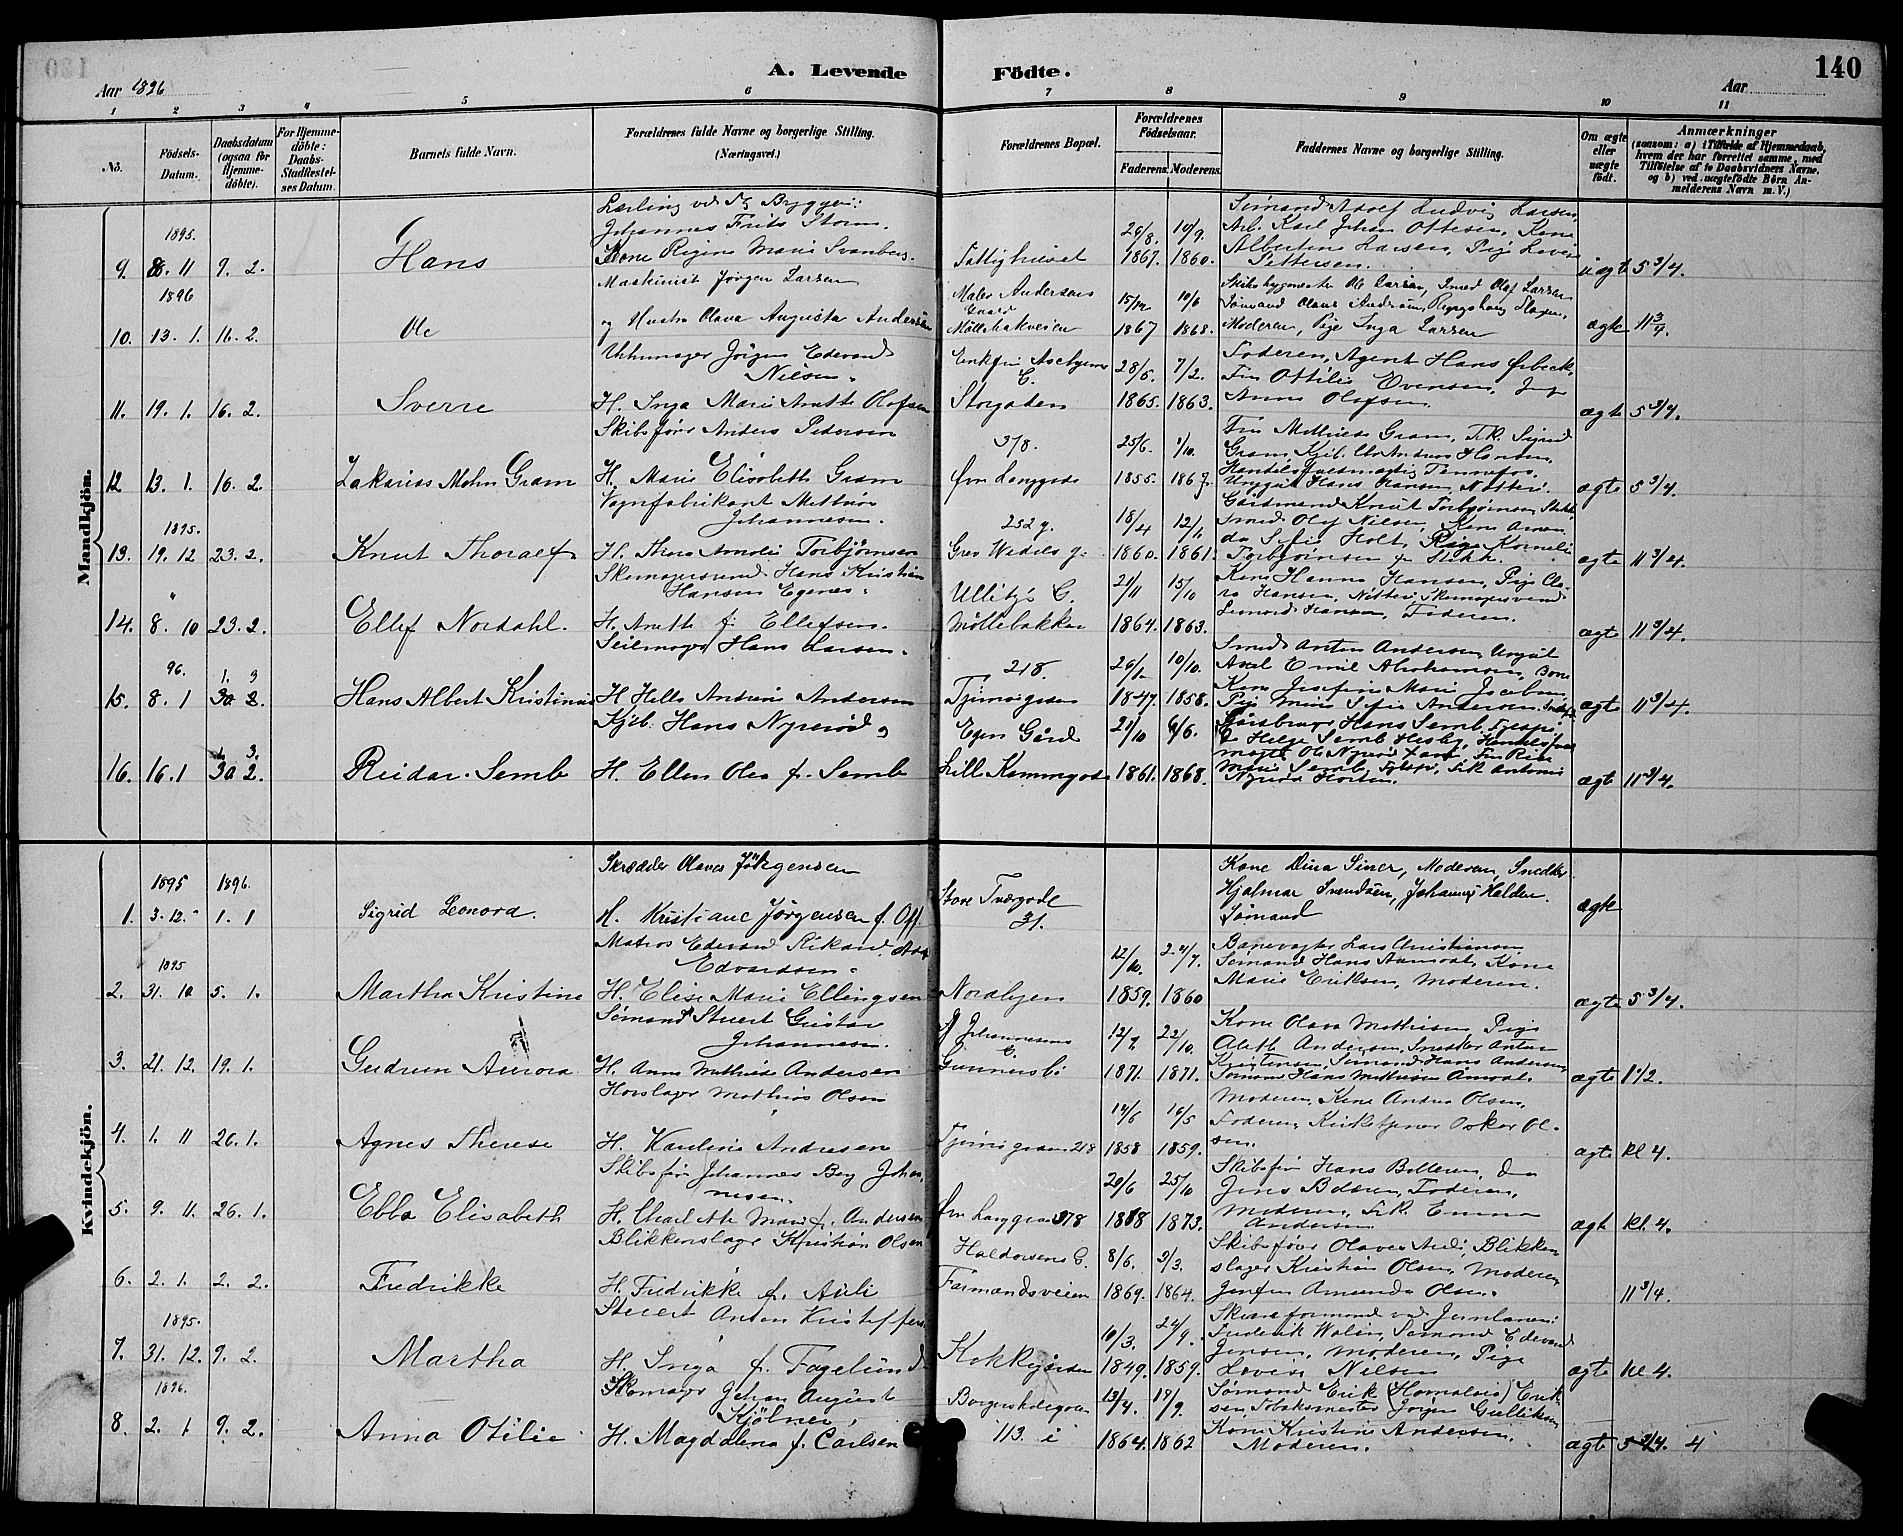 A. Levende Födte.
140
Aar 1896
Aar
1 2 3 4 5 6 7 8 9 10 11
No.
Födsels-Datum.
Daabsdatum (ogsaa for Hjemme-döbte).
For Hjemme-döbte: Daabs-Stadfæstel-ses Datum.
Barnets fulde Navn.
Forældrenes fulde Navne og borgerlige Stilling. (Næringsvei.)
Forældrenes Bopæl.
Forældrenes Födselsaar.
Faderens. Moderens.
Faddernes Navne og borgerlige Stilling.
Om ægte eller uægte födt.
Anmærkninger
(saasom: a) i Tilfælde af Hjemmedaab, hvem der har forrettet samme, med Tilföielse af to Daabsvidners Navne. og b) ved uægtefödte Börn An-melderens Navn m. V.)
Mandkjön.
1895.
9. 8. 11 9. 2. Hans
Johannes Frits Storm.
Kone Regine Marie Svanberg.
Fattighuset
26/8. 1867. 10/9. 1860.
Sömand Adolf Ludvig Larsen
Arb. Karl Johan Ottesen, Kone
Albertine Larsen, Pige Lovise
Pettersen.
uægt 5 3/4.
1896
10. 13. 1. 16. 2. Ole
Maskinist Jørgen Larsen
og Hustru Olava Augusta Andersen
Maler Andersens Gaard
Möllebakveien
1867 10/6 1868.
Skibsbygmester Ole Larsen, Smed Olaf Larsen
Sömand Olaus Andersen,
Moderen, Pige Inga Larsen
ægte 11 3/4
11. 19. 1. 16. 2. Sverre
Uhrmager Jörgen Edvard
Nilsen.
H. Inga Marie Anette Olafsen
Storgaden
28/5. 1865. 7/2. 1863.
Faderen, Agent Hans Ørbeck,
Fru Ottilie Evensen,
Anna Olafsen.
ægte 5 3/4.
12 13. 1. 16. 2. Zakarias Mohn Gram
Skibsförer Anders Pedersen
H. Marie Elisabeth Gram
378.
Övre Langgade
25/6. 1855. 1/10.
Fru Mathilde Gram, Frk. Sigrid
Gram,
Ungkarl Hans Hansen, Nötterö.
ægte 5 3/4.
1895.
13. 19. 12 23. 2. Knut Thoralf
Vognfabrikant Mathias
Johannesen.
H. Thora Amalie Torbjørnsen
252 g.
Grev Wedels g.
18/4 1860. 12/1 1861.
Gårdmand Knut Torbjørnsen,
Smed Olaf Nilsen, Kone Aman-
da Sofie Holt, Pige Kornelie
Torbjørnsen
ægte 11 3/4.
"
14. 8. 10 23. 2. Ellef Nordahl.
Skomagersvend Hans Kristian
Hansen Egenes.
H. Anette f. Ellefsen.
Möllebakken
21/11 1864. 15/10 1863.
Kone Hanna Hansen, Pige Cla-
ra Hansen, Nötterö, Skomagersvend
Lenard Hansen, Faderen.
ægte 11 3/4.
96.
15. 8. 1 30 2. 1. 3 Hans Albert Kristinius
Seilmager Hans Larsen.
H Helle Andrine Andersen
218.
Tjømøgaden
1847. 10/10. 1858.
Smed Anton Andersen, Ungkarl
Axel Emil Abrahamsen,
Kone Josefine Marie Jacobsen
Pige Mina Sofie Andersen
ægte 11 3/4.
16. 16. 1 30 2. 1. 3. Reidar Semb
Kjöb. Hans Nyeröd.
H. Ellen Olea f. Semb
Egen Gård
Lille Kammegade
21/10 1861. 6/6. 1868.
Gårdbruger Hans Semb,
Helge Semb
Marie Semb,
ægte 11 3/4.
Kvindekjön.
1895 1896.
1. 3. 12. 1. 1 Sigrid Leonora.
Skrædder Olaves Jörgensen
H. Kristiane Jørgensen f.
Store Tværgade
31.
Kone Dina Siner, Moderen, Snedker
Hjalmar Svendsen, Johannes Halden
Sömand
ægte
1895
2. 31. 10 5. 1. Martha Kristine
Matros Edevard Rikard
Edvardsen.
H. Elise Marie Ellingsen
Nordbyen
12/10. 1859. 24/7. 1860
Banevogter Lars Christiansen
Sömand Hans Aamodt, Kone
Marie Eriksen, Moderen.
ægte 5 3/4.
3. 21. 12. 19. 1. Gudrun Aurora
Sömand Stuert Gustav
Johannesen.
H. Anna Mathilde Andersen
Johannesens G.
Gunnersbö
1871. 22/10. 1871.
Kone Olava Mathisen, Pige
Aleth Andersen, Snedker Anton
Kristensen, Sömand Hans Andersen
Sömand Hans Mathisen Aamodt.
ægte 11/2.
4. 1. 11 26. 1. Agnes Therese
Hovslager Mathias Olsen
H. Kauline Andresen
218
14/6 1858 16/5 1859.
Moderen, Kone Andrea Olsen,
Faderen, Kirketjener Oskar Ol-
sen.
ægte kl 4.
5. 9. 11. 26. 1. Ebba Elisabeth
Skibsför. Johannes Berg Johan-
nesen.
H. Charlotte Marie f. Andersen
Övre Langgade 378
20/6 1868 25/10 1873.
Skibsför. Hans Bolleren, do
Jens Bolæren, Faderen,
Moderen, Frk. Emma
Andersen
ægte kl. 4.
6. 2. 1. 2. 2. Fredrikke
Blikkenslager Kristian Olsen
H. Fredrikke f. Auli
Haldorsens G.
Farmandsveien
8/6. 1869. 3/3. 1864.
Skibsförer Olaves Auli, Blikken-
slager Kristian Olsen, Moderen
Jomfru Amanda Olsen.
11 3/4.
1895.
7. 31. 12. 9. 2. Martha
Stuert Anton Kristoffersen
H. Inga f. Fagelund
Kokkegården
10/3. 1849. 24/9. 1859.
Frederik Walin, Sömand Edevard
Jensen, Moderen, Pige
Lovise Nilsen
ægte kl 4.
1896.
8. 2. 1. 9. 2. Anna Otilie
Skomager Johan August
Kjölner.
H. Magdalena f. Carlsen
113. i
13/4. 1864. 18/9. 1862
Sömand Erik (Homalvis) Erik-
sen Tobaksmester Jörgen Gulliksen
Kone Kristine Andersen.
Moderen.
ægte 5 3/4. 4